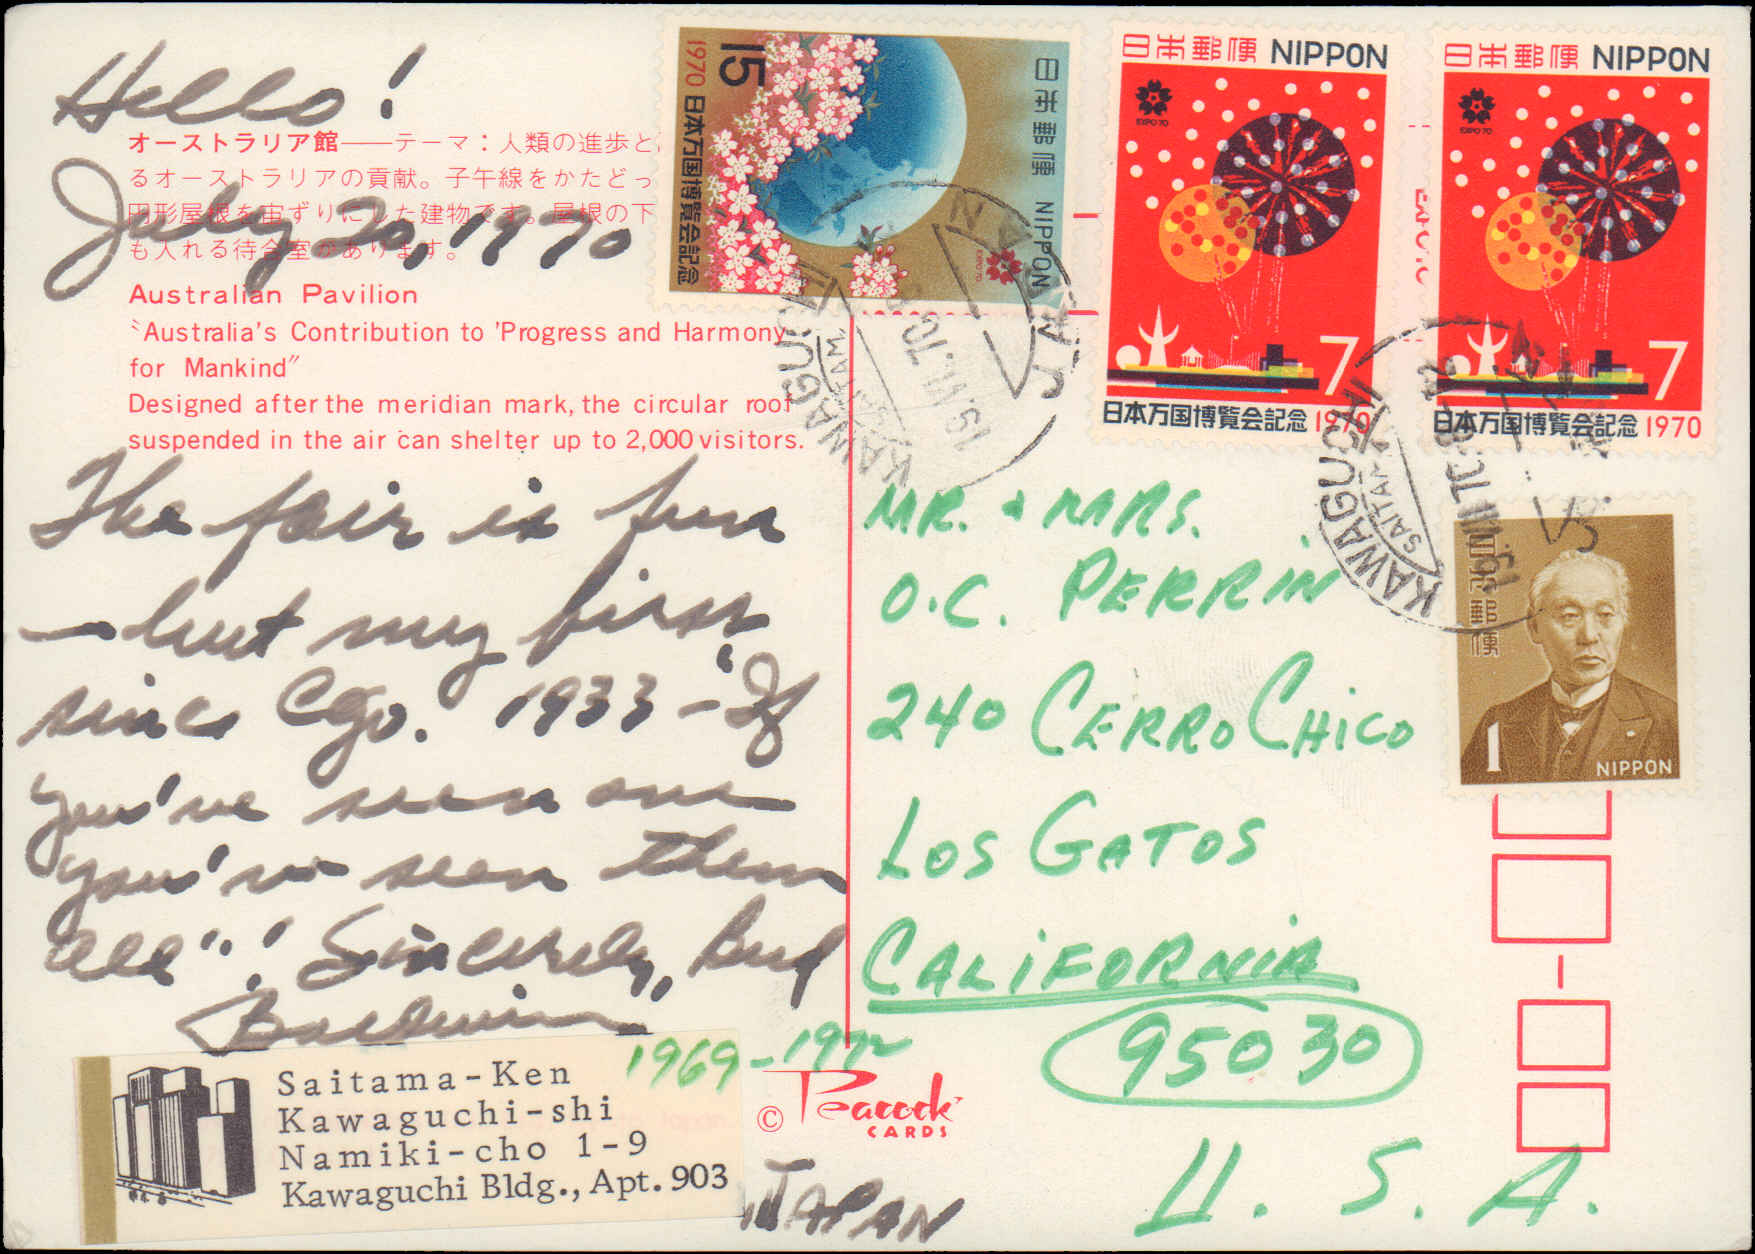 Hello!
オーストラリア館――テーマ：人類の進歩と
るオーストラリアの貢献。子午線をかたどっ
円形屋根を宙ずりにした建物です。屋根の下
も入れる待合室があります。
July 20, 1970
Australian Pavilion
"Australia's Contribution to 'Progress and Harmony
for Mankind"
Designed after the meridian mark, the circular roof
suspended in the air can shelter up to 2,000 visitors.
The fair is fun
- but my first
since Cgo. 1933 - "If
you've seen one
you've seen them
all"! Sincerely, Bud
Baldwin
Saitama-Ken
Kawaguchi-shi
Namiki-cho 1-9
Kawaguchi Bldg., Apt. 903
JAPAN
1969-1972
© Peacock
CARDS
15
1970 日本万国博覧会記念
日本郵便 NIPPON
EXPO'70
日本郵便 NIPPON
EXPO'70
7
日本万国博覧会記念 1970
日本郵便 NIPPON
EXPO'70
7
日本万国博覧会記念 1970
日本郵便
1 NIPPON
KAWAGUCHI
SAITAMA
19.VII.70
JAPAN
KAWAGUCHI
SAITAMA
19.VII.70
MR. & MRS.
O.C. PERRIN
240 CERRO CHICO
LOS GATOS
CALIFORNIA
95030
U.S.A.